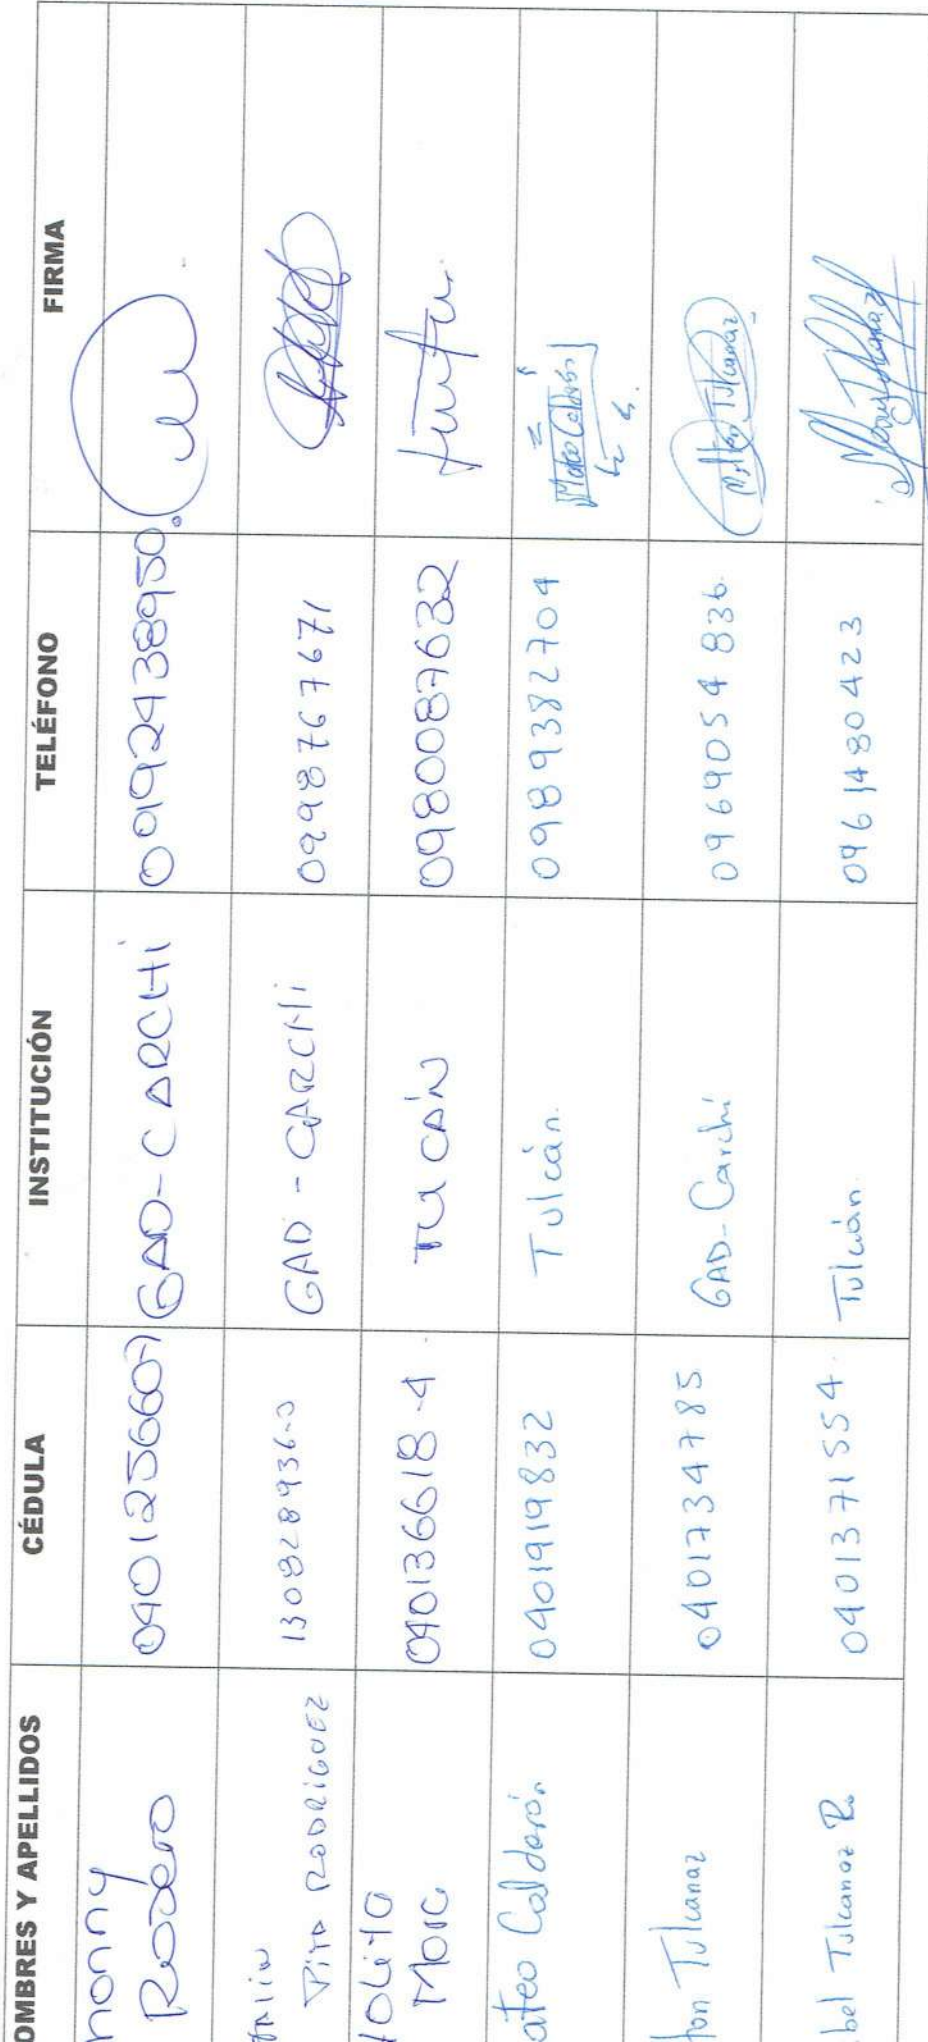 OMBRES Y APELLIDOS CÉDULA INSTITUCIÓN TELÉFONO FIRMA
honny
0401256607 GAD-CARCHI 0992438950
130828936-0 GAD-CARCHI 0998767671
RODRIGUEZ
040136618-4 0980087632
ateo Calderón 0401919832 Tulcán. 0989382704 Mateo Calderón
ton Tulcanaz 0401734785 GAD-Carchi 0969054836 Tulcanaz
bel Tulcanaz R. 0401371554 Tulcán. 0961480423